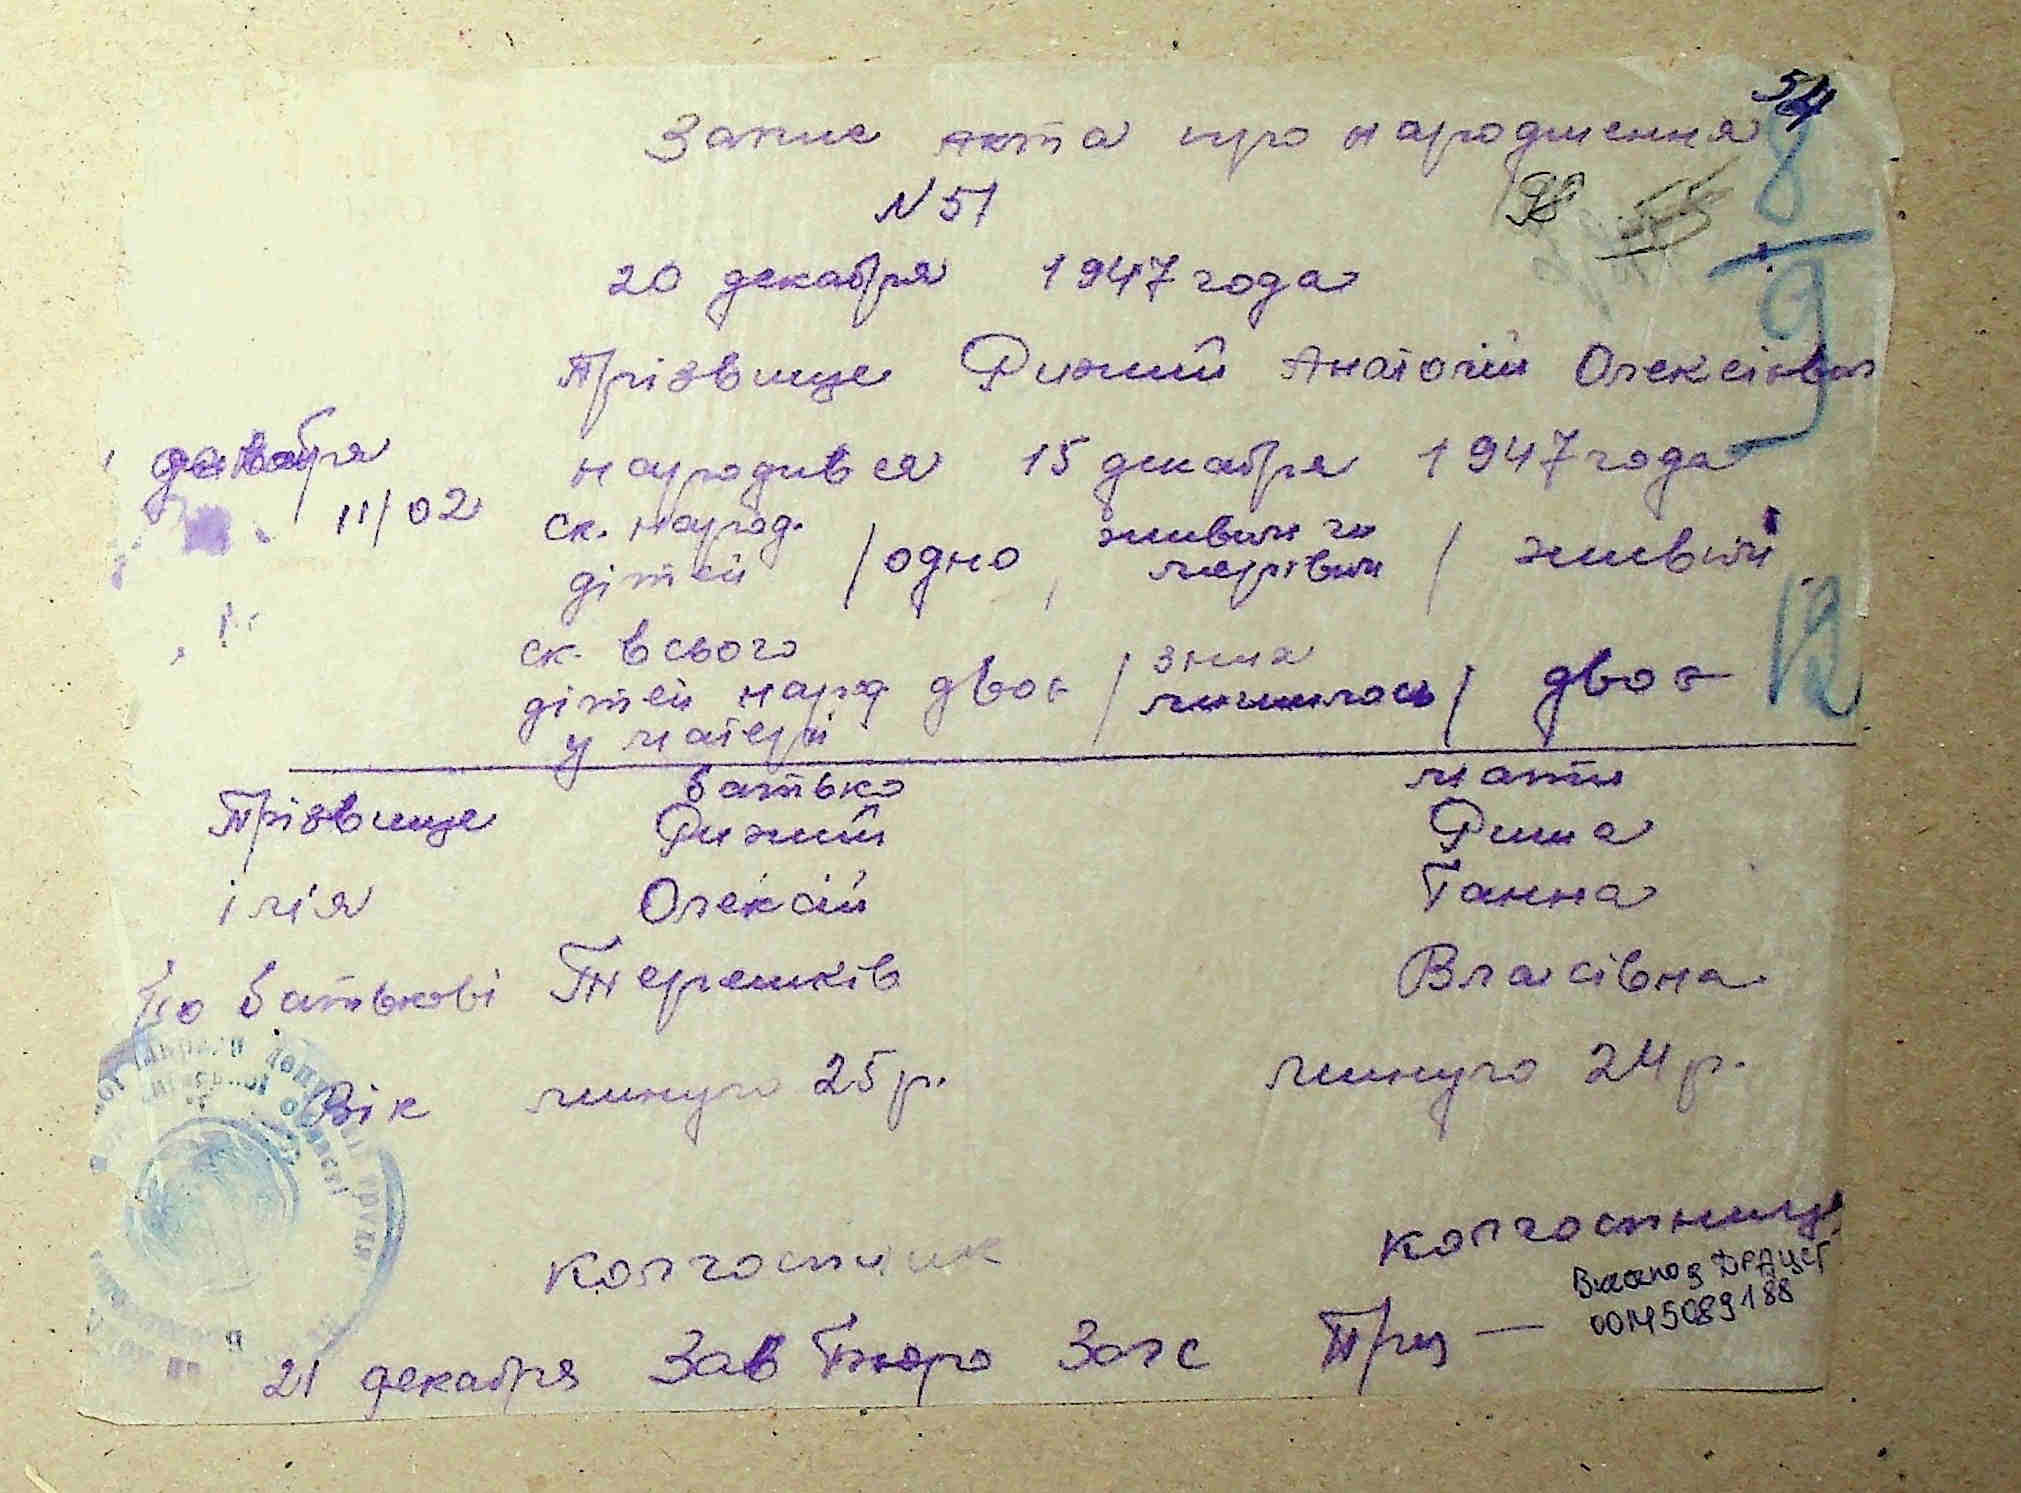 54
Запис акта про народження
8
N 51
98
20 декабря 1947 года
9
Прізвище Рижий Анатолій Олексійов
декабря
народився 15 декабря 1947 года
11/02
ск. народ. дітей / одно, живим чи мертвим / живим
12
ск. всього дітей народ у матері двоє / з них лишилось / двоє
батько мати
Прізвище Рижий Рижа
імя Олексій Ганна
по батькові Терешків Власівна
Вік минуло 25 р. минуло 24 р.
колгоспник колгоспниця
Виклад ДРАЦСГ
00145089188
21 декабря Зав Бюро Загс